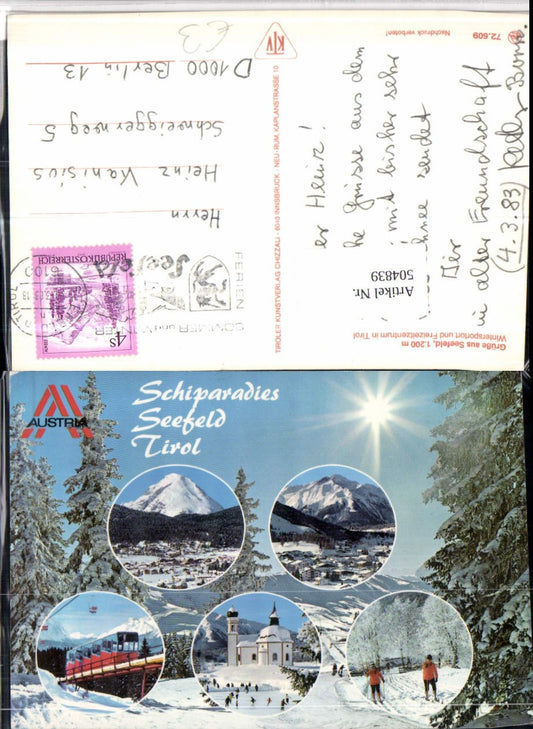 Grüße aus Seefeld, 1.200 m
Wintersportort und Freizeitzentrum in Tirol
72.609
Nachdruck verboten!
er Heinz!
he Grüsse aus dem
mit bisher sehr
hnee sendet
Dir
in alter Freundschaft
(4.3.83)
Artikel Nr.
504839
TIROLER KUNSTVERLAG CHIZZALI · 6040 INNSBRUCK · NEU-RUM, KAPLANSTRASSE 10
KTV
€3
REPUBLIK ÖSTERREICH
4S
6100
FERIEN
Seefeld
SOMMER
Herrn
Heinz Kanisius
Schneiggerweg 5
D 1000 Berlin 13
AUSTRIA
Schiparadies
Seefeld
Tirol